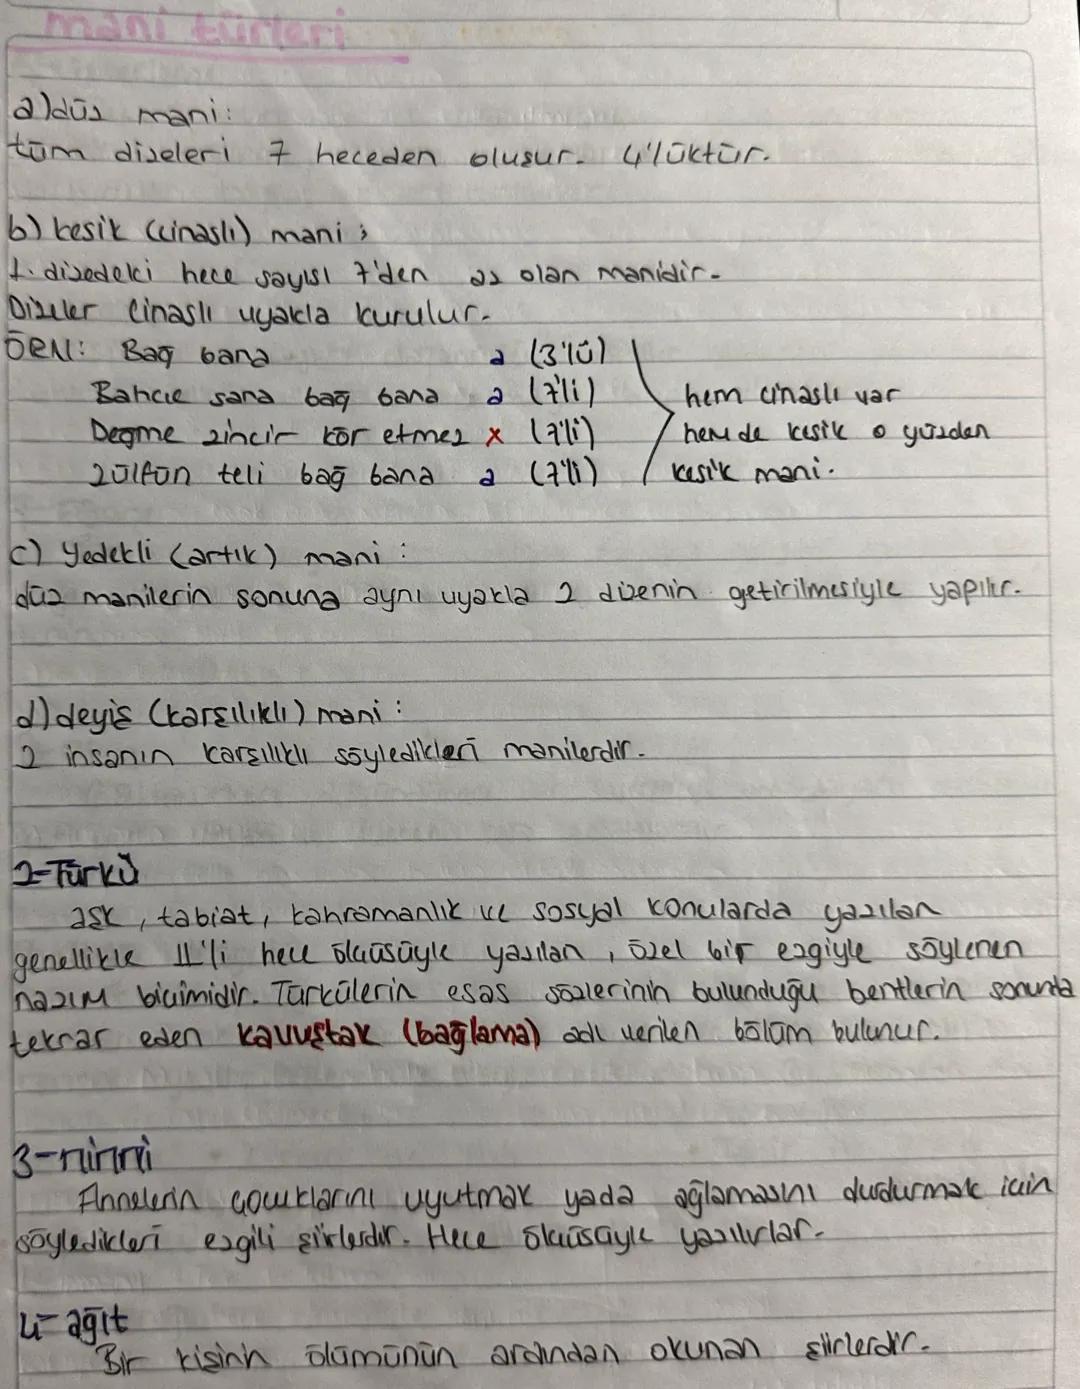 mani türleri
a) düz mani:
tüm dizeleri 7 heceden oluşur. 4'lüktür.
b) kesik (cinaslı) mani;
1. dizedeki hece sayısı 7'den az olan manidir.
Dizeler cinaslı uyakla kurulur.
ÖRN: Bağ bana a (3'lü)
Bahçe sana bağ bana a (7'li) hem cinaslı var
Değme zincir kör etmez x (7'li) hem de kesik o yüzden
zülfün teli bağ bana a (7'li) kesik mani.
c) Yedekli (artık) mani:
düz manilerin sonuna aynı uyakla 2 dizenin getirilmesiyle yapılır.
d) deyiş (karşılıklı) mani:
2 insanın karşılıklı söyledikleri manilerdir.
2-Türkü
aşk, tabiat, kahramanlık ve sosyal konularda yazılan
genellikle 11'li hece ölçüsüyle yazılan, özel bir ezgiyle söylenen
nazım biçimidir. Türkülerin esas sözlerinin bulunduğu bentlerin sonunda
tekrar eden kavuştak (bağlama) adı verilen bölüm bulunur.
3-ninni
Annelerin çocuklarını uyutmak yada ağlamasını durdurmak için
söyledikleri ezgili şiirlerdir. Hece ölçüsüyle yazılırlar.
4-ağıt
Bir kişinin ölümünün ardından okunan şiirlerdir.